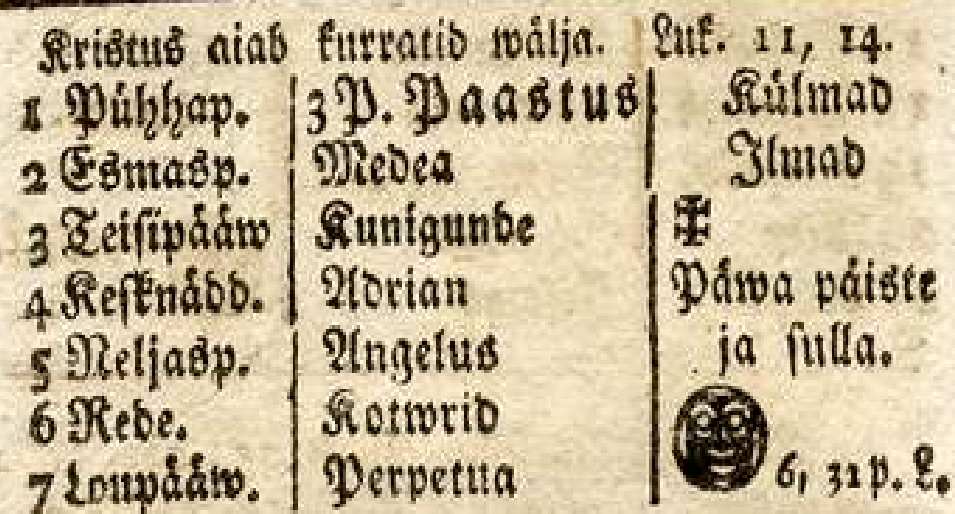 Kristus aiab kurratid wälja. Luk. 11, 14.
1 Pühhap. 3 P. Paastus Külmad
2 Esmasp. Medea Ilmad
3 Teisipääw Kunigunde ✠
4 Kesknädd. Adrian Päwa päiste
5 Neljasp. Angelus ja sulla.
6 Rede. Kotwrid
7 Loupääw. Perpetua 6, 31 p. L.